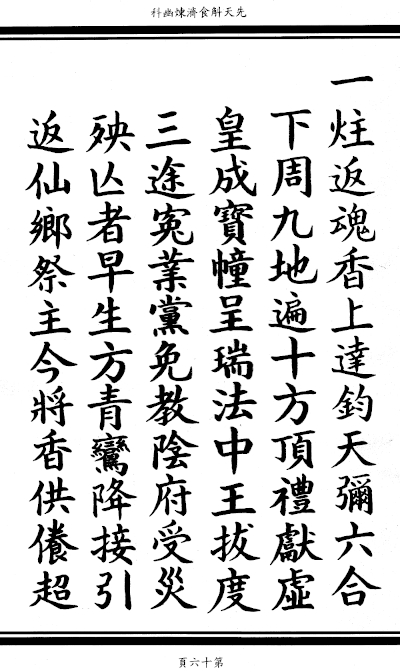 先天斛食濟煉幽科
一炷返魂香上達鈞天彌六合
下周九地遍十方頂禮獻虛
皇成寶幢呈瑞法中王拔度
三途冤業黨免教陰府受災
殃亾者早生方青鸞降接引
返仙鄉祭主今將香供餋超
第十六頁